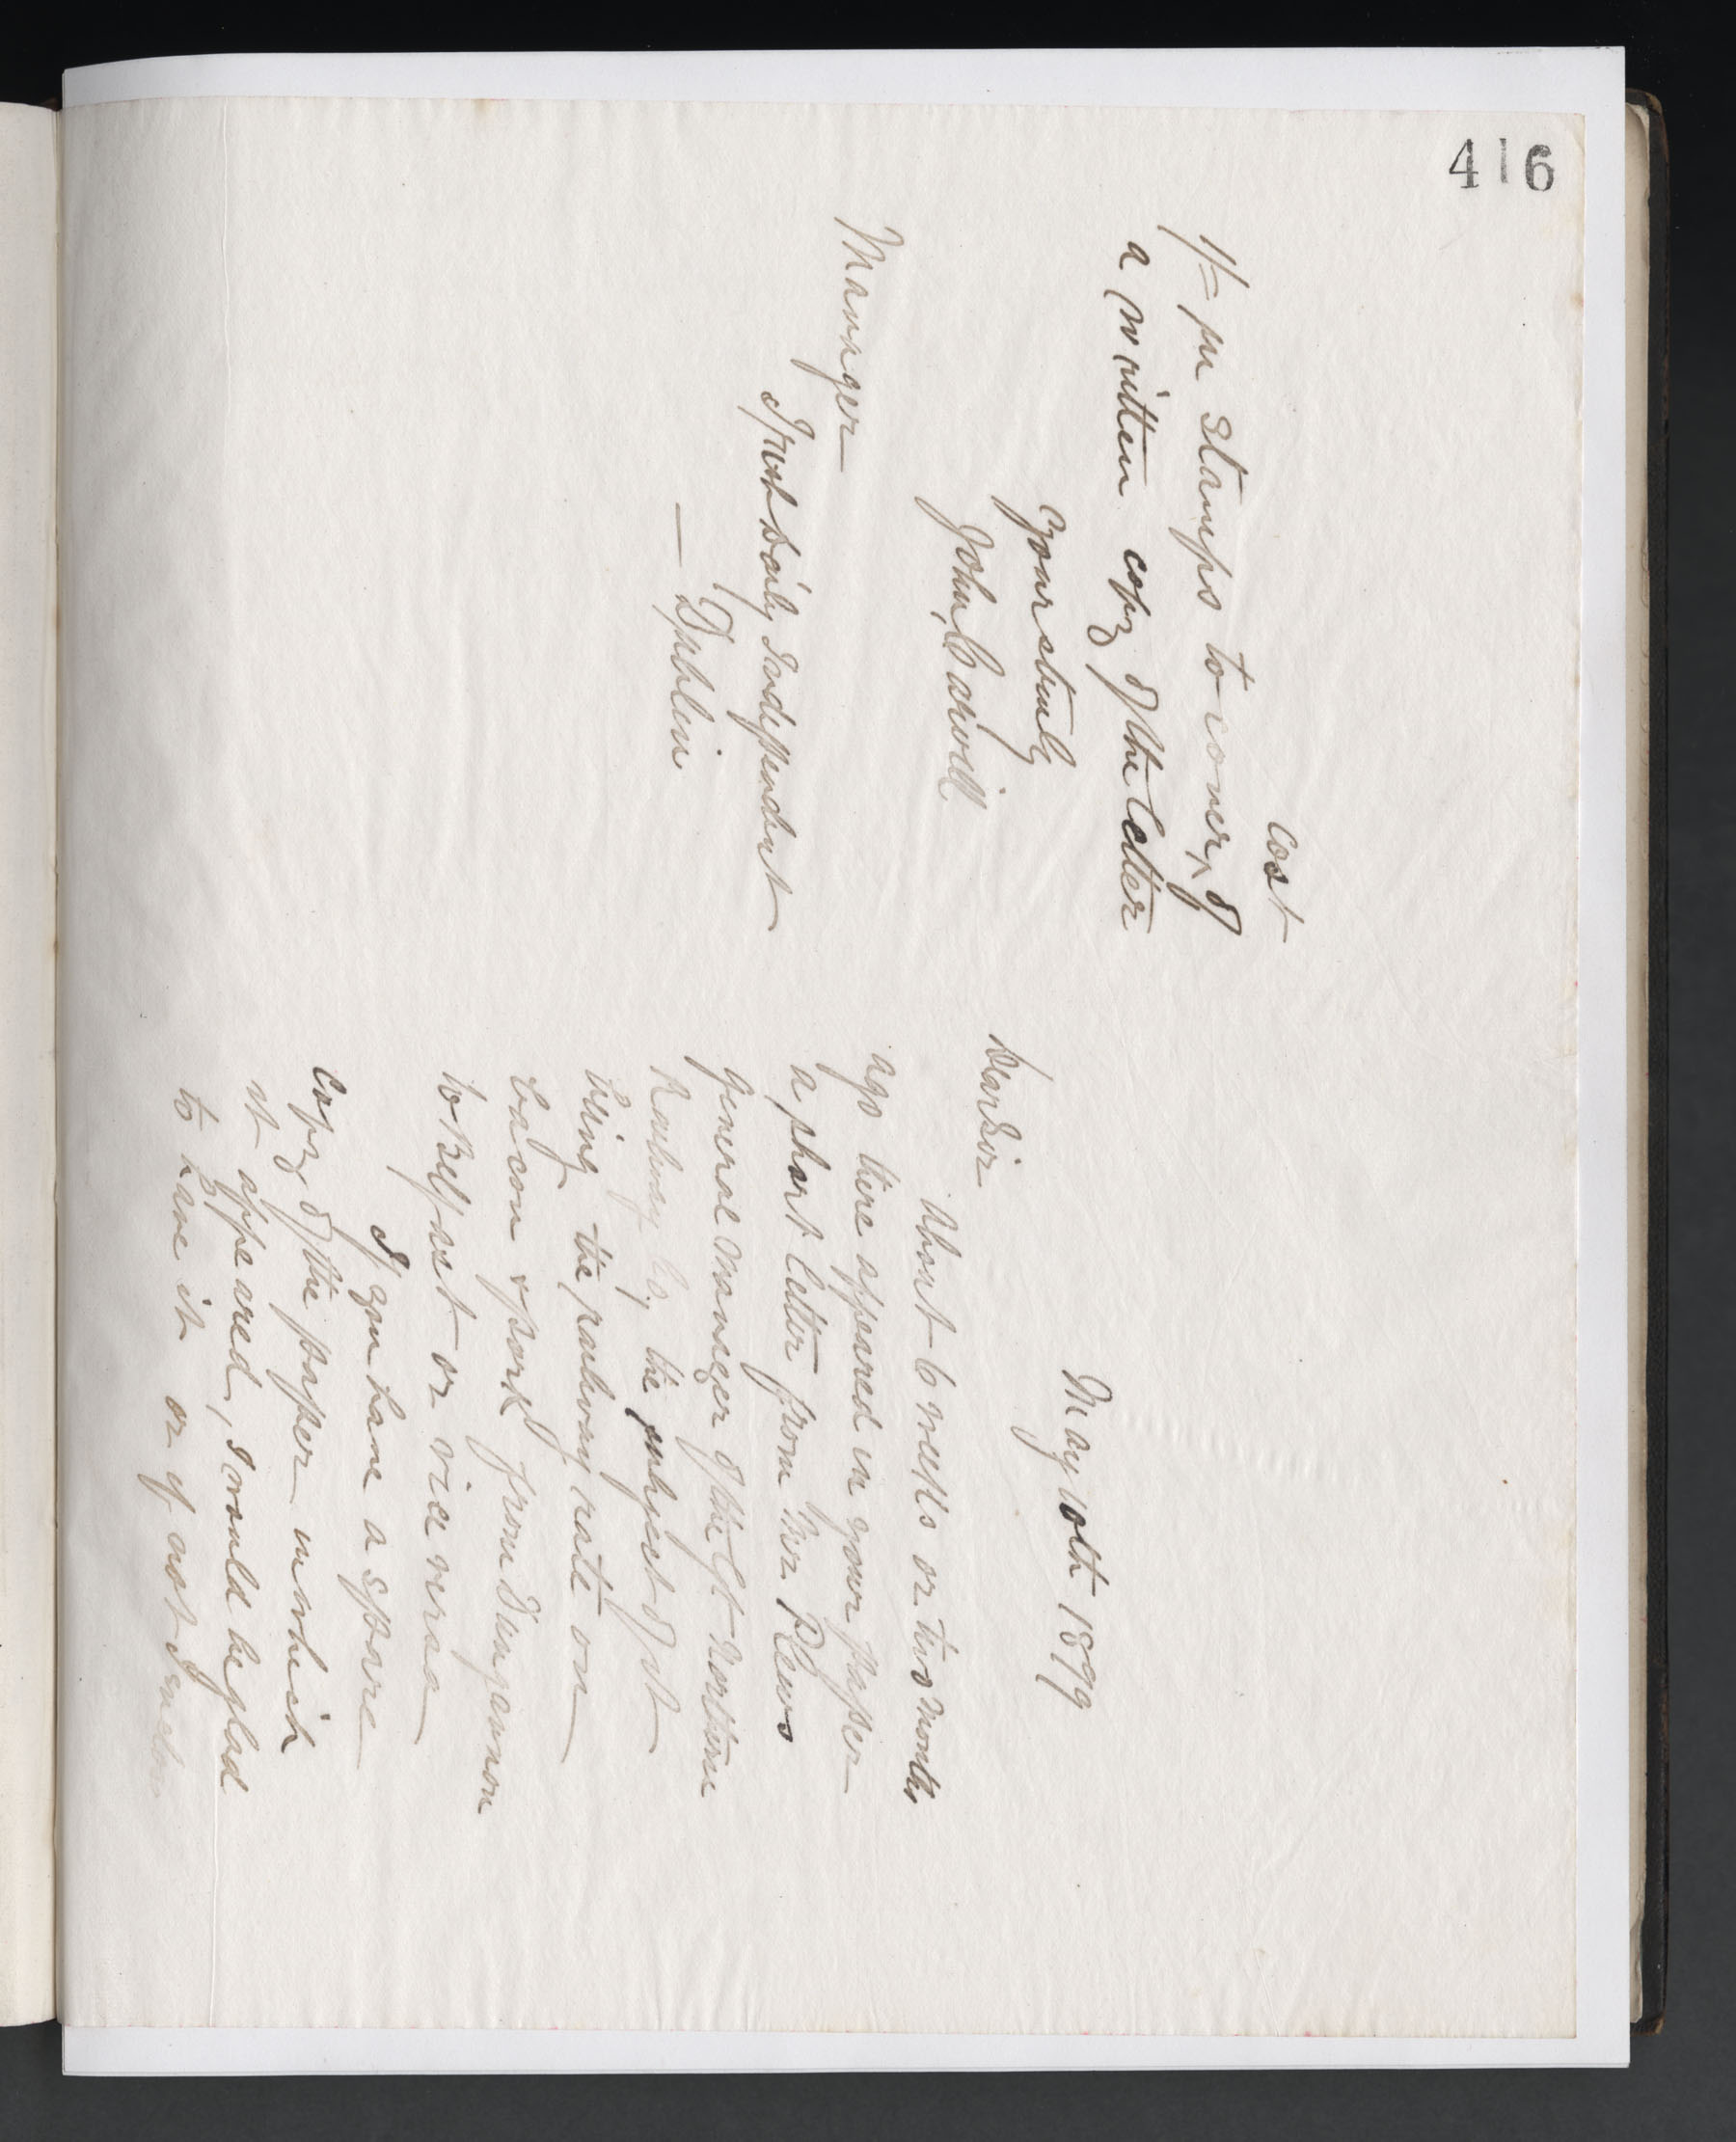 416
May 10th 1899
Dear Sir
About 6 weeks or two months
ago there appeared in your paper
a short letter from Mr Plews
general manager of the Gt Northern
Railway Co, the subject of it
being the railway rate on
bacon & pork from Dungannon
to Belfast or vice versa
If you have a spare
copy of the paper in which
it appeared, I would be glad
to have it or if not I enclose
1/- in stamps to cover ^ of
cost
a written copy of the letter
Yours truly
John Carvill
Manager
Irish Daily Independent
Dublin